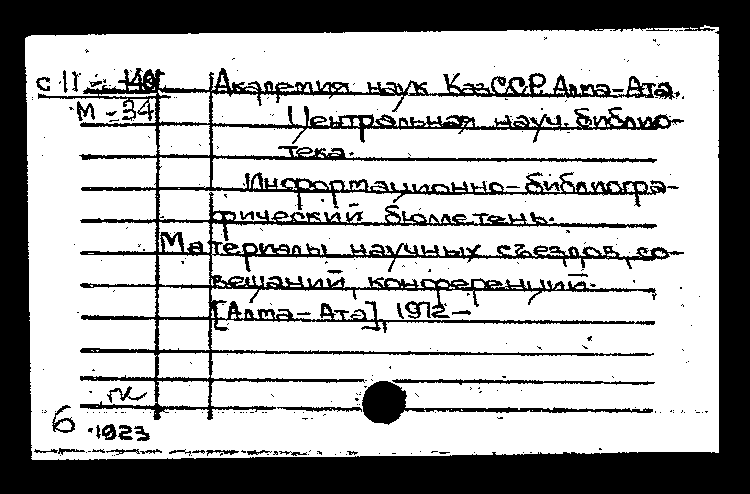 с II - 140
Академия наук КазССР. Алма-Ата.
М - 34
Центральная науч. библио-
тека.
Информационно-библиогра-
фический бюллетень.
Материалы научных съездов, со-
вещаний, конференций.
[Алма-Ата], 1972-
6
1923